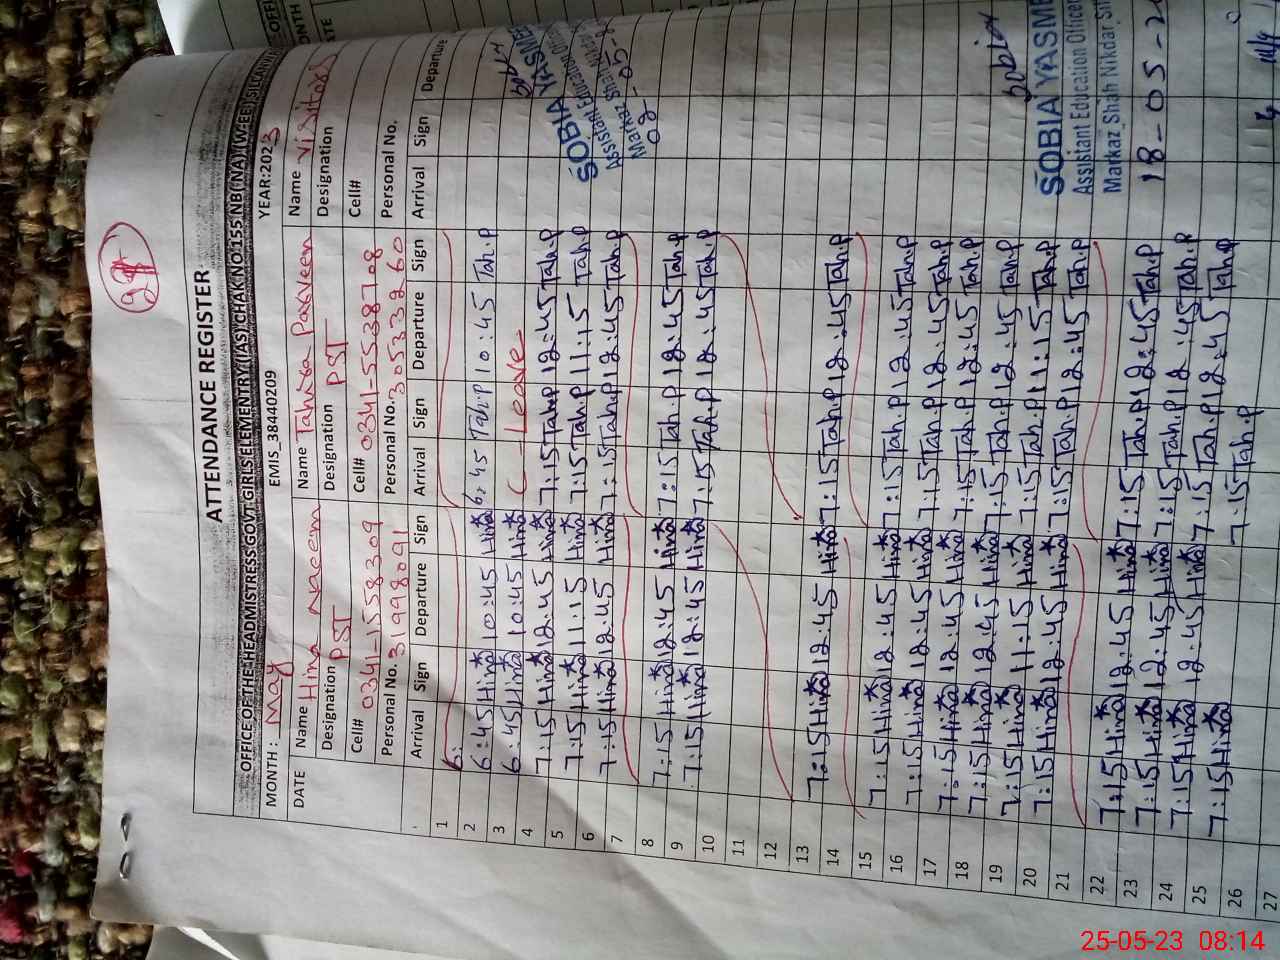 ATTENDANCE REGISTER
OFFICE OF THE HEADMISTRESS GOVT: GIRLS ELEMENTRY (IAS) CHAK NO 155 NB( NAI W-EE) SILLANWALI
MONTH: May EMIS_38440209 YEAR:2023
DATE Name Hina Naeem Name Tahira Parveen Name Visitors
Designation PST Designation PST Designation
Cell# 0341-1558309 Cell# 0341-5538708 Cell#
Personal No. 31998091 Personal No. 30533260 Personal No.
Arrival Sign Departure Sign Arrival Sign Departure Sign Arrival Sign Departure
1 6:
2 6:45 Hina 10:45 Hina 6:45 Tah.P 10:45 Tah.P
3 6:45 Hina 10:45 Hina C-Leave
4 7:15 Hina 12:45 Hina 7:15 Tah.P 12:45 Tah.P
5 7:15 Hina 11:15 Hina 7:15 Tah.P 11:15 Tah.P
6 7:15 Hina 12:45 Hina 7:15 Tah.P 12:45 Tah.P
7
8 7:15 Hina 12:45 Hina 7:15 Tah.P 12:45 Tah.P
9 7:15 Hina 12:45 Hina 7:15 Tah.P 12:45 Tah.P
10
11
12
13 7:15 Hina 12:45 Hina 7:15 Tah.P 12:45 Tah.P
14
15 7:15 Hina 12:45 Hina 7:15 Tah.P 12:45 Tah.P
16 7:15 Hina 12:45 Hina 7:15 Tah.P 12:45 Tah.P
17 7:15 Hina 12:45 Hina 7:15 Tah.P 12:45 Tah.P
18 7:15 Hina 12:45 Hina 7:15 Tah.P 12:45 Tah.P
19 7:15 Hina 11:15 Hina 7:15 Tah.P 11:15 Tah.P
20 7:15 Hina 12:45 Hina 7:15 Tah.P 12:45 Tah.P
21
22 7:15 Hina 12:45 Hina 7:15 Tah.P 12:45 Tah.P
23 7:15 Hina 12:45 Hina 7:15 Tah.P 12:45 Tah.P
24 7:15 Hina 12:45 Hina 7:15 Tah.P 12:45 Tah.P
25 7:15 Hina 7:15 Tah.P
26
27
SOBIA YASME
Assistant Education Offic
Markaz Shah Nikdar
SOBIA YASME
Assistant Education Officer
Markaz Shah Nikdar
18-05-2
25-05-23 08:14